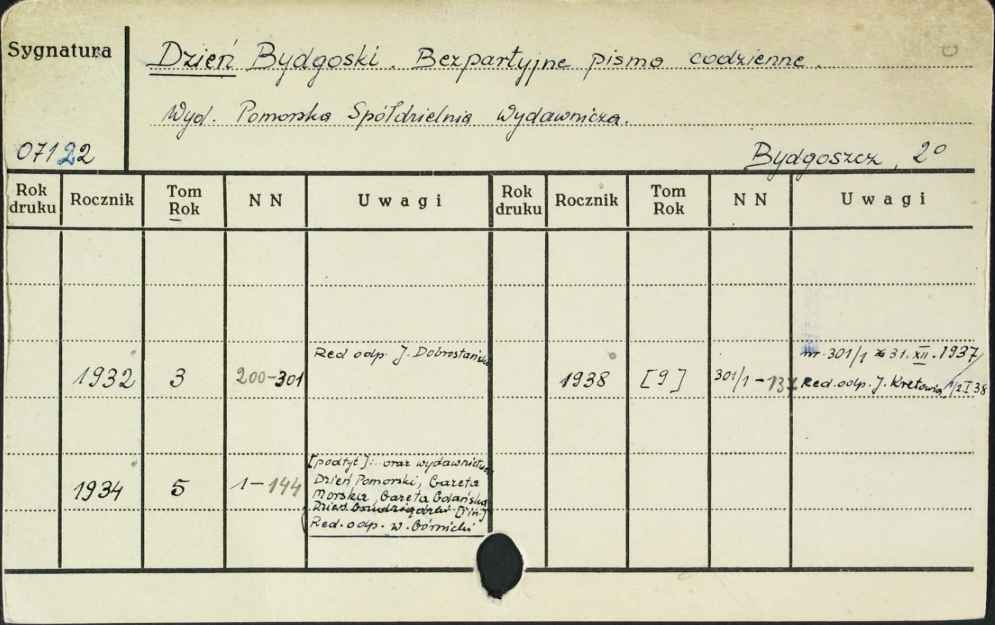 Sygnatura
Dzień Bydgoski. Bezpartyjne pismo codzienne.
Wyd. Pomorska Spółdzielnia Wydawnicza.
07122
Bydgoszcz, 2°
Rok druku Rocznik Tom Rok NN Uwagi Rok druku Rocznik Tom Rok NN Uwagi
Red. odp. J. Dobrostański
nr 301/1 z 31.XII.1937
1932 3 200-301
1938 [9] 301/1-137 Red. odp. J. Kretowicz, 1/2 I 38
[podtyt]: oraz wydawnictwa
Dzień Pomorski, Gazeta
1934 5 1-144
Morska, Gazeta Gdańska
Dzień Grudziądzki [i in.]
Red. odp. W. Górnicki